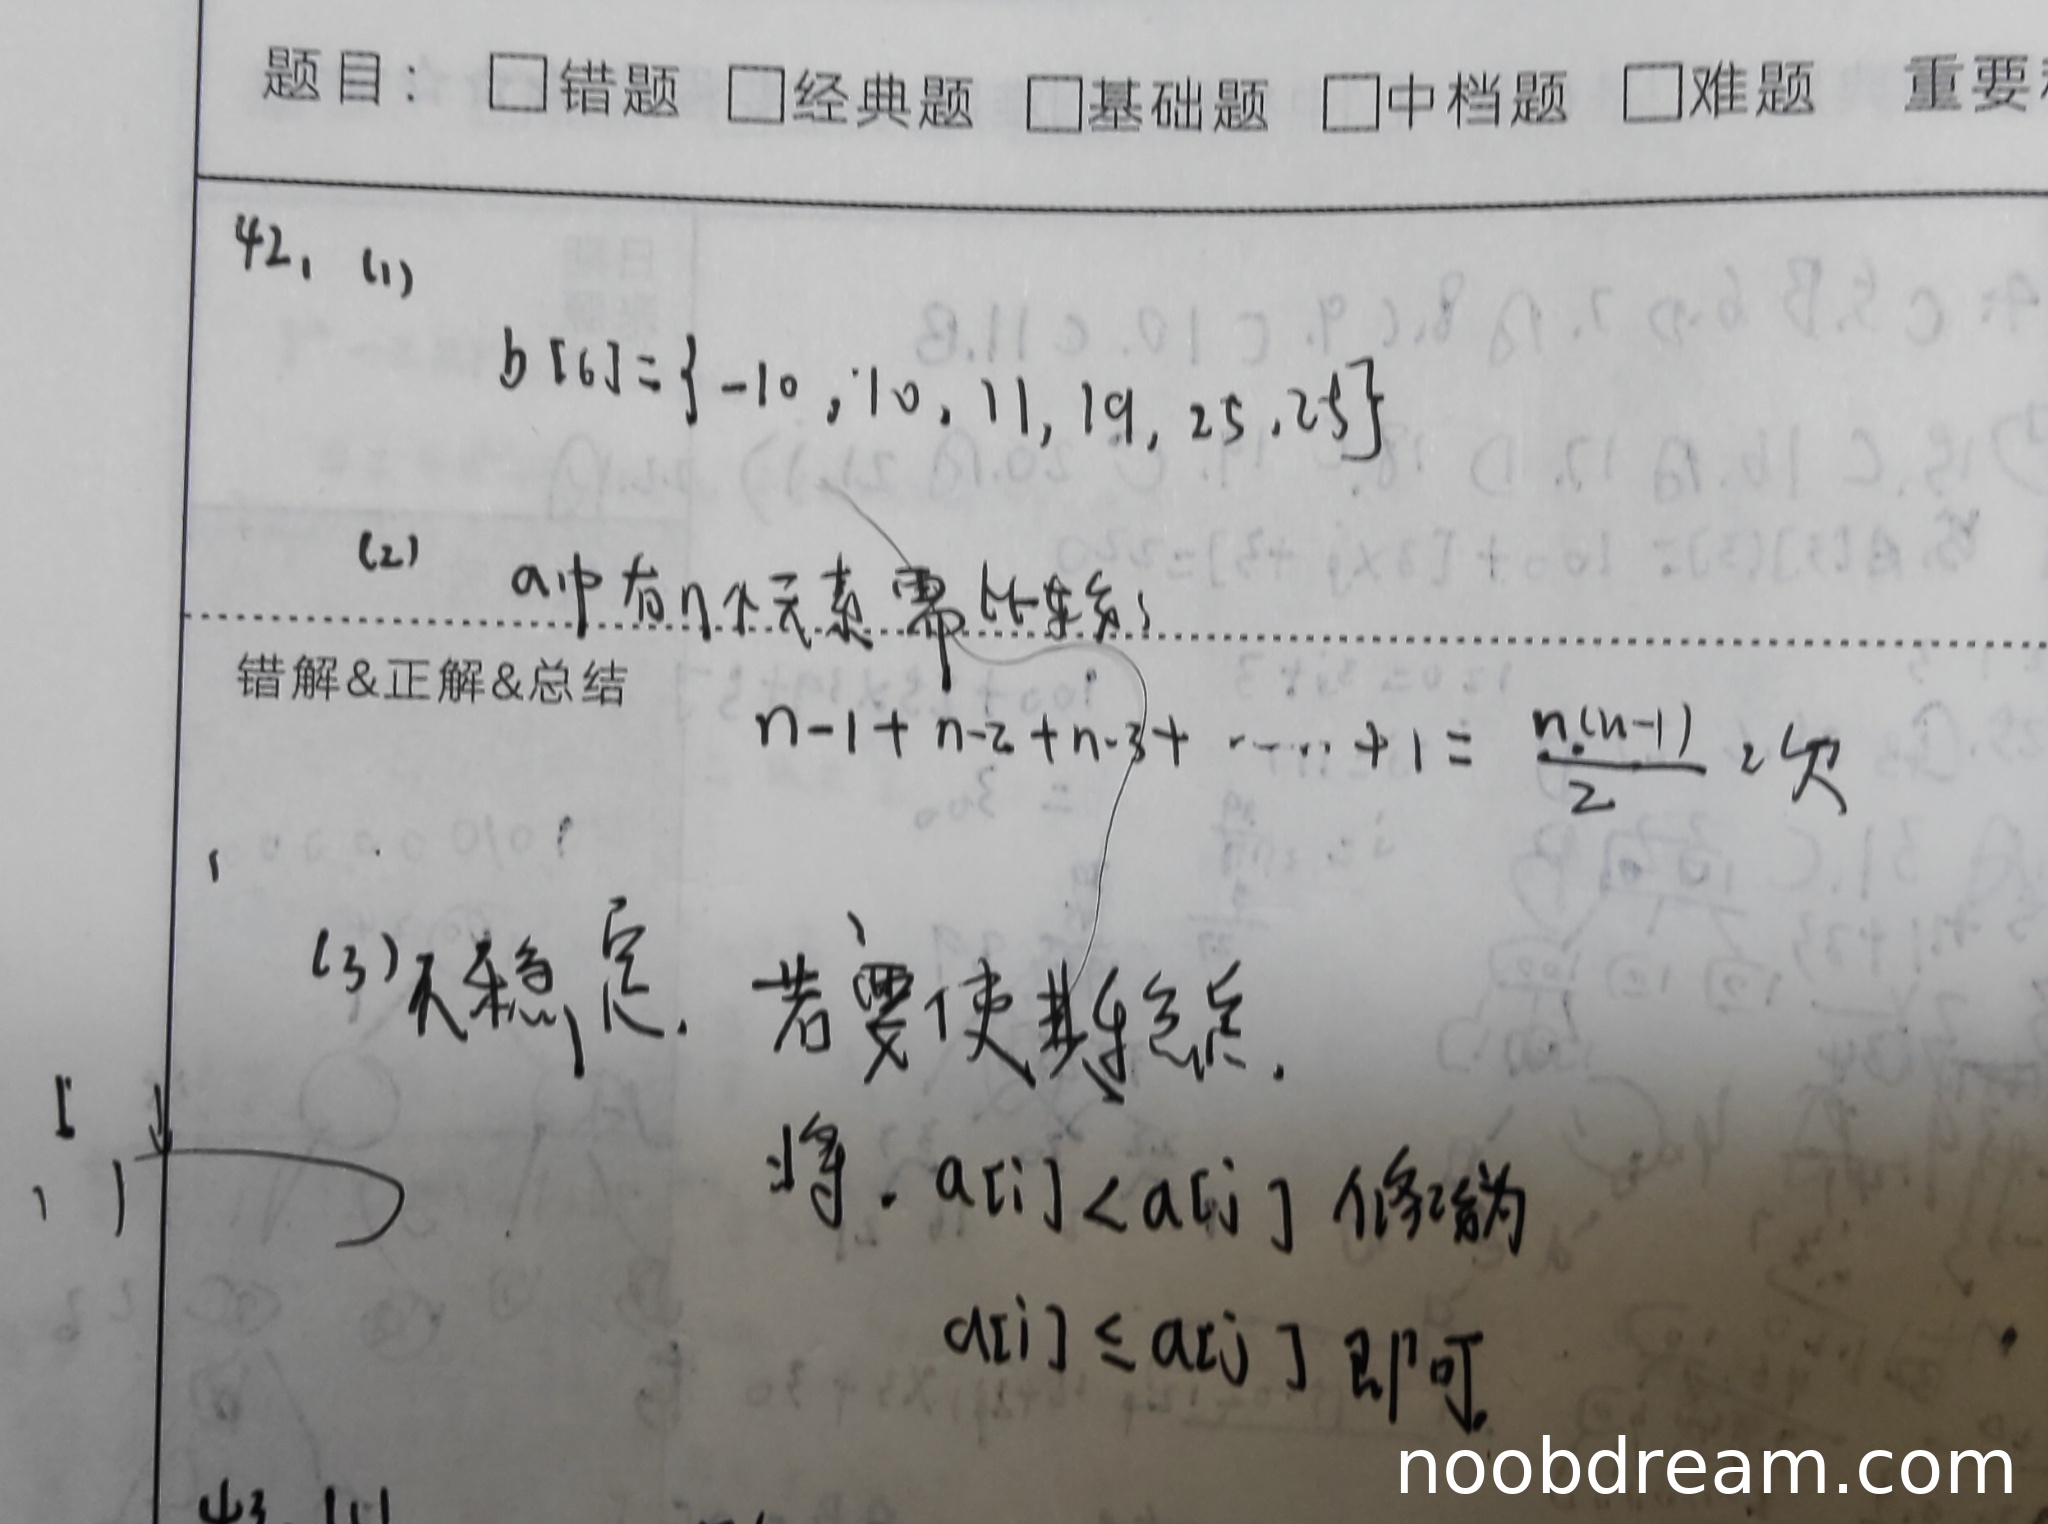 题目： □错题 □经典题 □基础题 □中档题 □难题 重要
42, (1)
b[6]={-10, 10, 11, 19, 25, 25}
(2) a中有n个元素需比较
错解&正解&总结
n-1+n-2+n-3+……+1= n(n-1)/2 次
(3) 不稳定. 若要使其稳定.
将. a[i]<a[j] 修改为
a[i]≤a[j] 即可.
43. (1)
noobdream.com